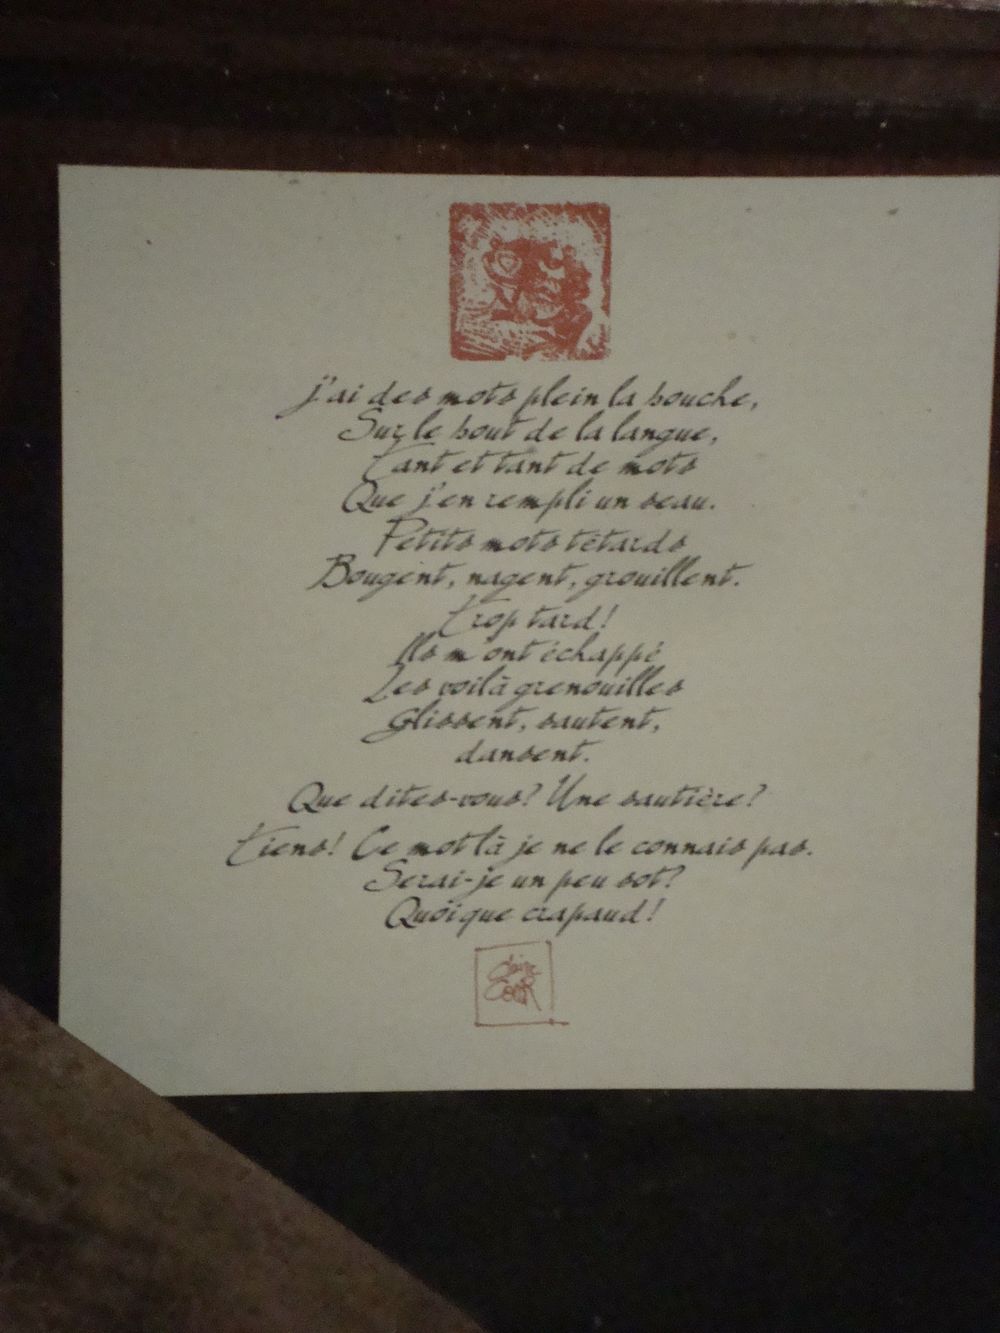 j'ai des mots plein la bouche,
Sur le bout de la langue,
Tant et tant de mots
Que j'en rempli un seau.
Petits mots tétards
Bougent, nagent, grouillent.
Trop tard!
Ils m'ont échappé
Les voilà grenouilles
Glissent, sautent,
dansent.
Que dites-vous? Une sautière?
Tiens! Ce mot là je ne le connais pas.
Serai-je un peu sot?
Quoique crapaud!